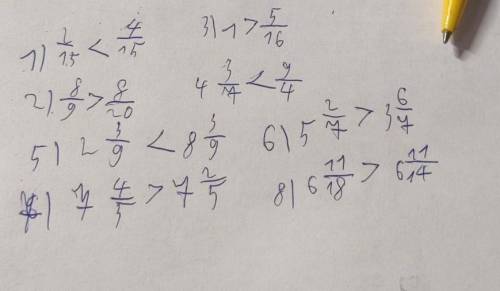 1) 2/15 < 4/15
3) 1 > 5/16
2) 8/9 > 8/20
4 3/7 < 9/4
5) 2 3/9 < 8 3/9
6) 5 2/7 > 3 6/7
7 4/5 > 7 2/5
8) 6 11/18 > 6 11/14